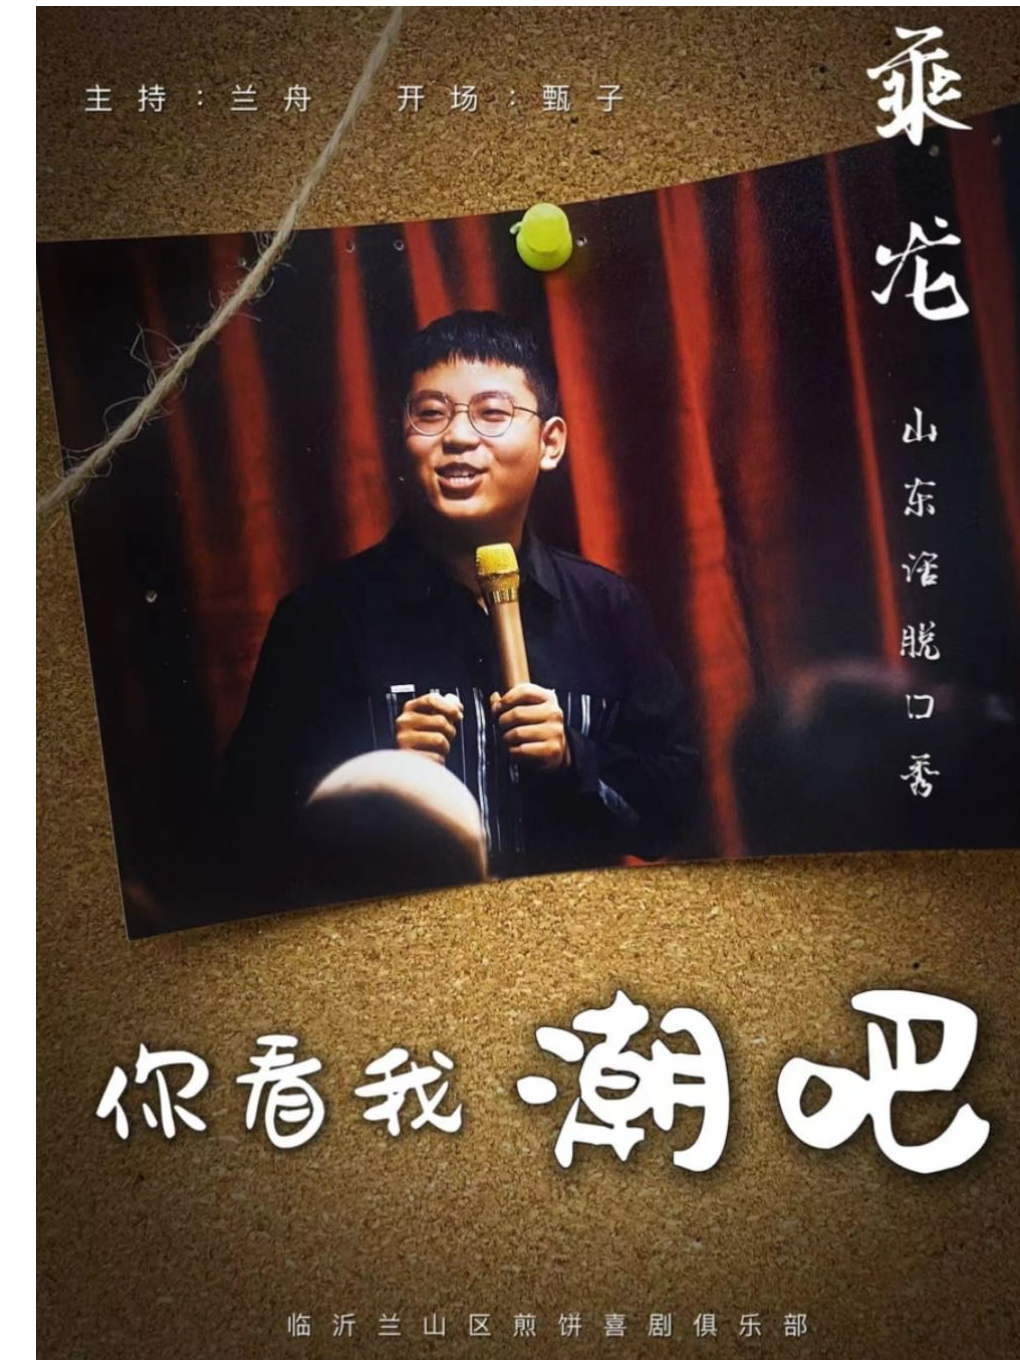 主持：兰舟 开场：甄子
乘龙
山东话脱口秀
你看我潮吧
临沂兰山区煎饼喜剧俱乐部